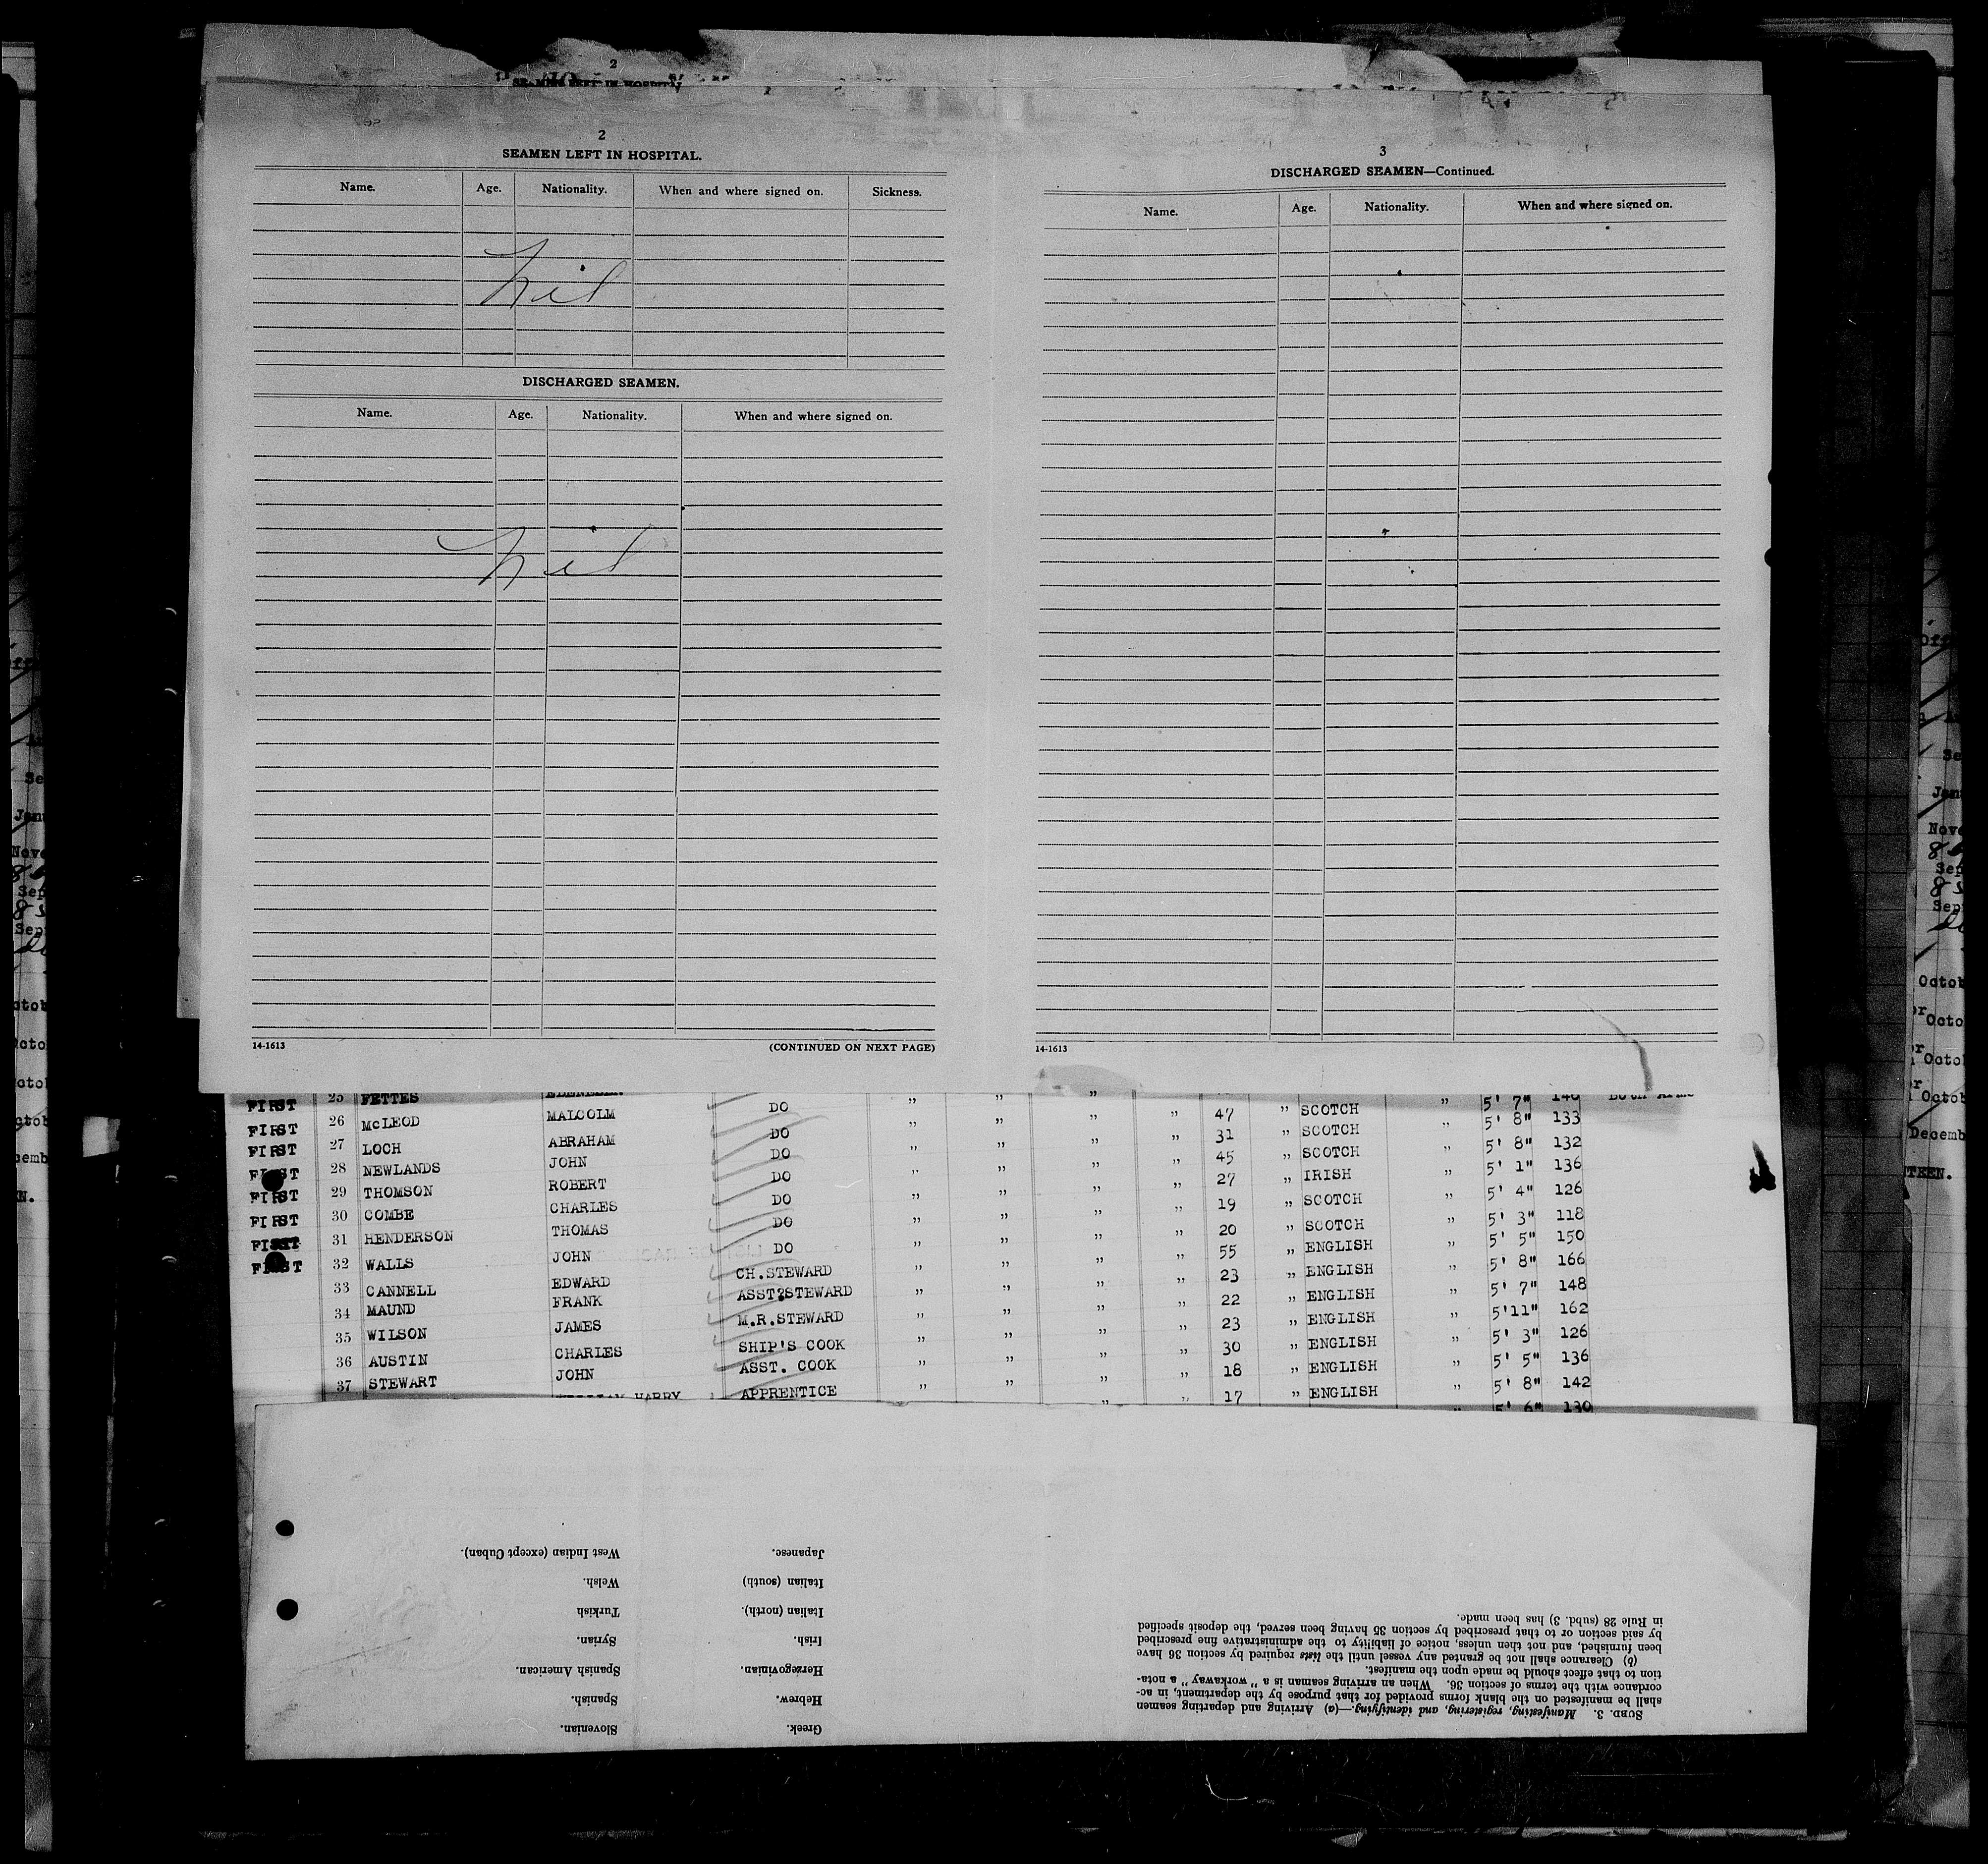 2
SEAMEN LEFT IN HOSPITAL
2
SEAMEN LEFT IN HOSPITAL.
Name. Age. Nationality. When and where signed on. Sickness.
nil
DISCHARGED SEAMEN.
Name. Age. Nationality. When and where signed on.
nil
14-1613 (CONTINUED ON NEXT PAGE)
3
DISCHARGED SEAMEN—Continued.
Name. Age. Nationality. When and where signed on.
14-1613
FIRST 25 FETTES EBENEZER " " " 5' 7" 140 Both Arms
FIRST 26 McLEOD MALCOLM DO " " " " 47 " SCOTCH " 5' 8" 133
FIRST 27 LOCH ABRAHAM DO " " " " 31 " SCOTCH " 5' 8" 132
FIRST 28 NEWLANDS JOHN DO " " " " 45 " SCOTCH " 5' 1" 136
FIRST 29 THOMSON ROBERT DO " " " " 27 " IRISH " 5' 4" 126
FIRST 30 COMBE CHARLES DO " " " " 19 " SCOTCH " 5' 3" 118
FIRST 31 HENDERSON THOMAS DO " " " " 20 " SCOTCH " 5' 5" 150
FIRST 32 WALLS JOHN DO " " " " 55 " ENGLISH " 5' 8" 166
33 CANNELL EDWARD CH.STEWARD " " " " 23 " ENGLISH " 5' 7" 148
34 MAUND FRANK ASST.STEWARD " " " " 22 " ENGLISH " 5'11" 162
35 WILSON JAMES M.R.STEWARD " " " " 23 " ENGLISH " 5' 3" 126
36 AUSTIN CHARLES SHIP'S COOK " " " " 30 " ENGLISH " 5' 5" 136
37 STEWART JOHN ASST. COOK " " " " 18 " ENGLISH " 5' 8" 142
WILLIAM HARRY APPRENTICE " " " " 17 " ENGLISH " 5' 6" 130
Greek. Slovenian.
Hebrew. Spanish.
Herzegovinian. Spanish American.
Irish. Syrian.
Italian (north). Turkish
Italian (south) Welsh.
Japanese. West Indian (except Cuban).
SUBD. 3. Manifesting, registering, and identifying.—(a) Arriving and departing seamen
shall be manifested on the blank forms provided for that purpose by the department, in ac-
cordance with the terms of section 36. When an arriving seaman is a "workaway" a nota-
tion to that effect should be made upon the manifest.
(b) Clearance shall not be granted any vessel until the lists required by section 36 have
been furnished, and not then unless, notice of liability to the administrative fine prescribed
by said section or to that prescribed by section 35 having been served, the deposit specified
in Rule 28 (subd. 3) has been made.